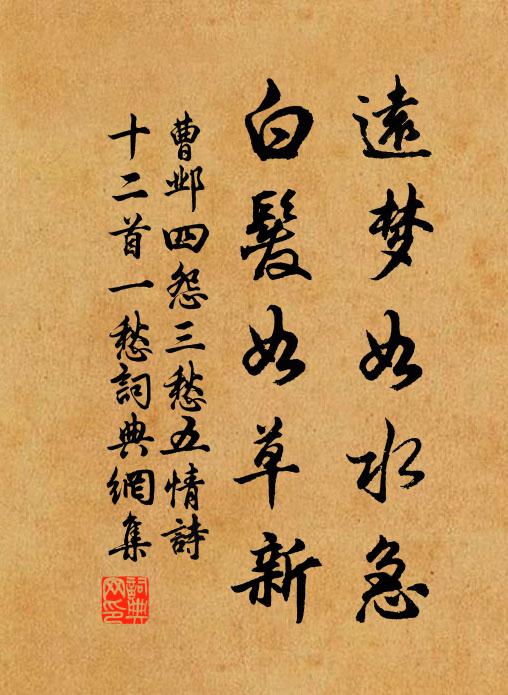 遠梦如水急
白髮如草新
曹邺四怨三愁五情詩
十二首一愁詞典網集
詞典
网印